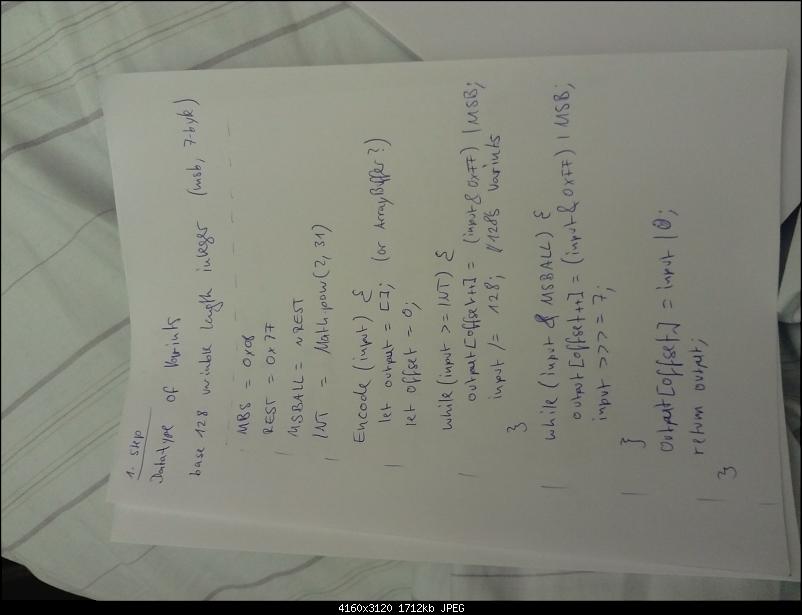 1. Step
Datatype of Varints
base 128 variable length integer (msb, 7-byte)
MBS = 0x08
REST = 0x77
MSBALL = ~REST
INT = Math.pow(2, 31)
Encode (input) {
let output = []; (or ArrayBuffer?)
let offset = 0;
while (input >= INT) {
output[offset++] = (input & 0x77) | MSB;
input /= 128; //128b Varints
}
while (input & MSBALL) {
output[offset++] = (input & 0x77) | MSB;
input >>>= 7;
}
Output[offset] = input | 0;
return output;
}
4160x3120 1712kb JPEG